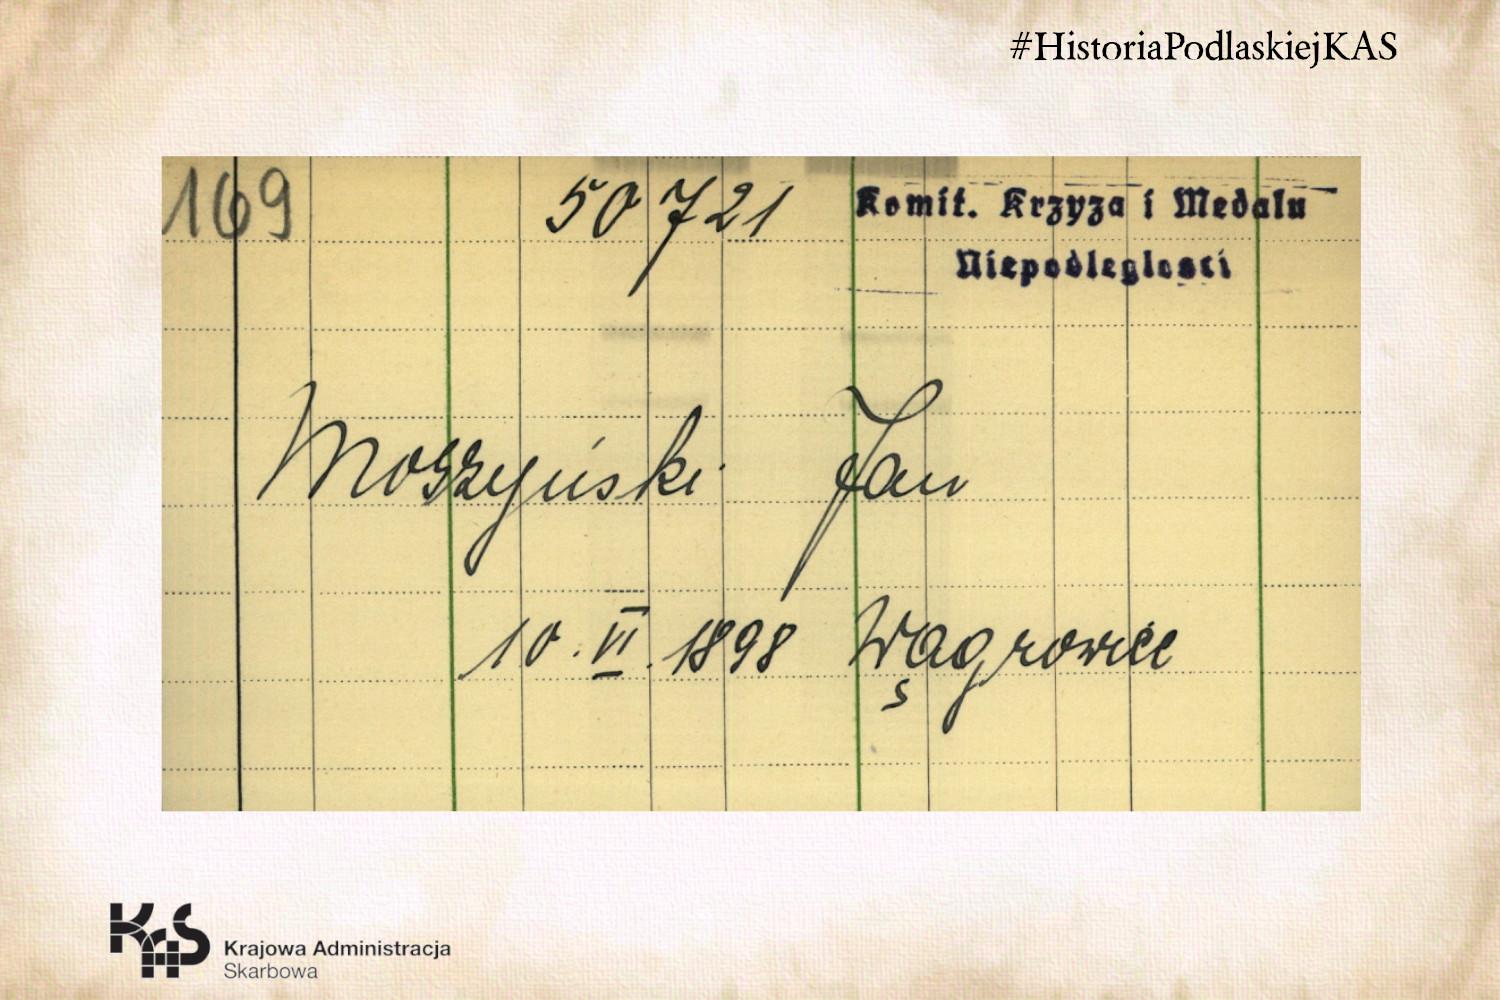 #HistoriaPodlaskiejKAS
169 50721 Komit. Krzyza i Medalu
Niepodleglosci
Moszyński Jan
10.VI.1898 Wągrowiec
KAS Krajowa Administracja
Skarbowa